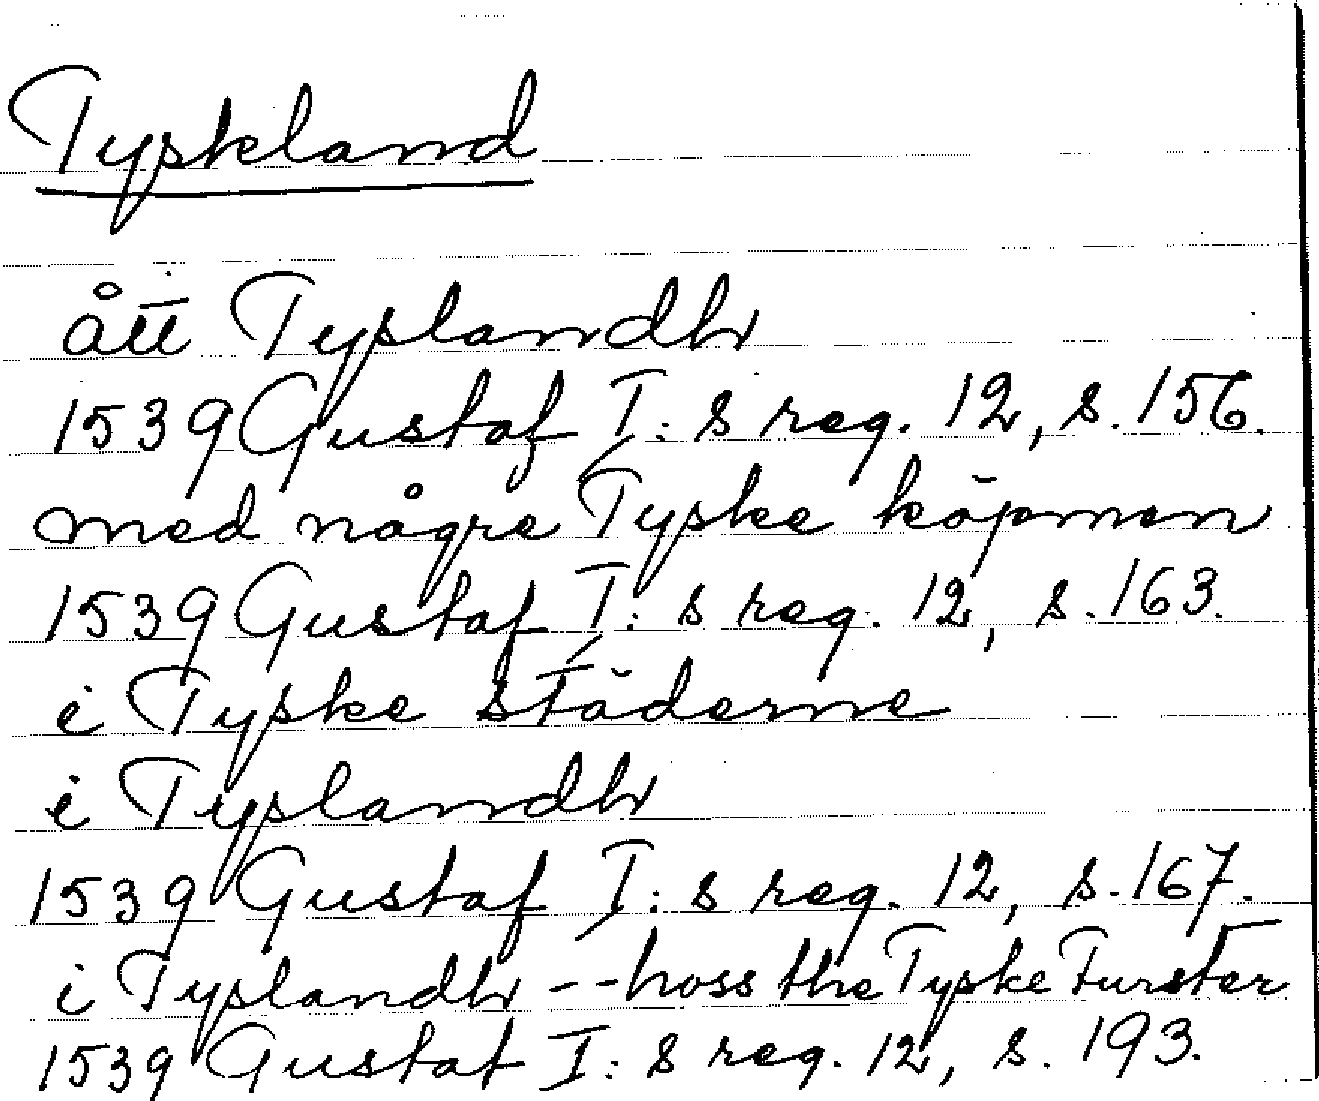 Tyskland
ått Tyslandh
1539 Gustaf I:s reg. 12, s. 156.
med någre Tyske köpmen
1539 Gustaf I:s reg. 12, s. 163.
i Tyske städerne
i Tyslandh
1539 Gustaf I:s reg. 12, s. 167.
i Tyslandh -- hoss the Tyske Furster
1539 Gustaf I:s reg. 12, s. 193.